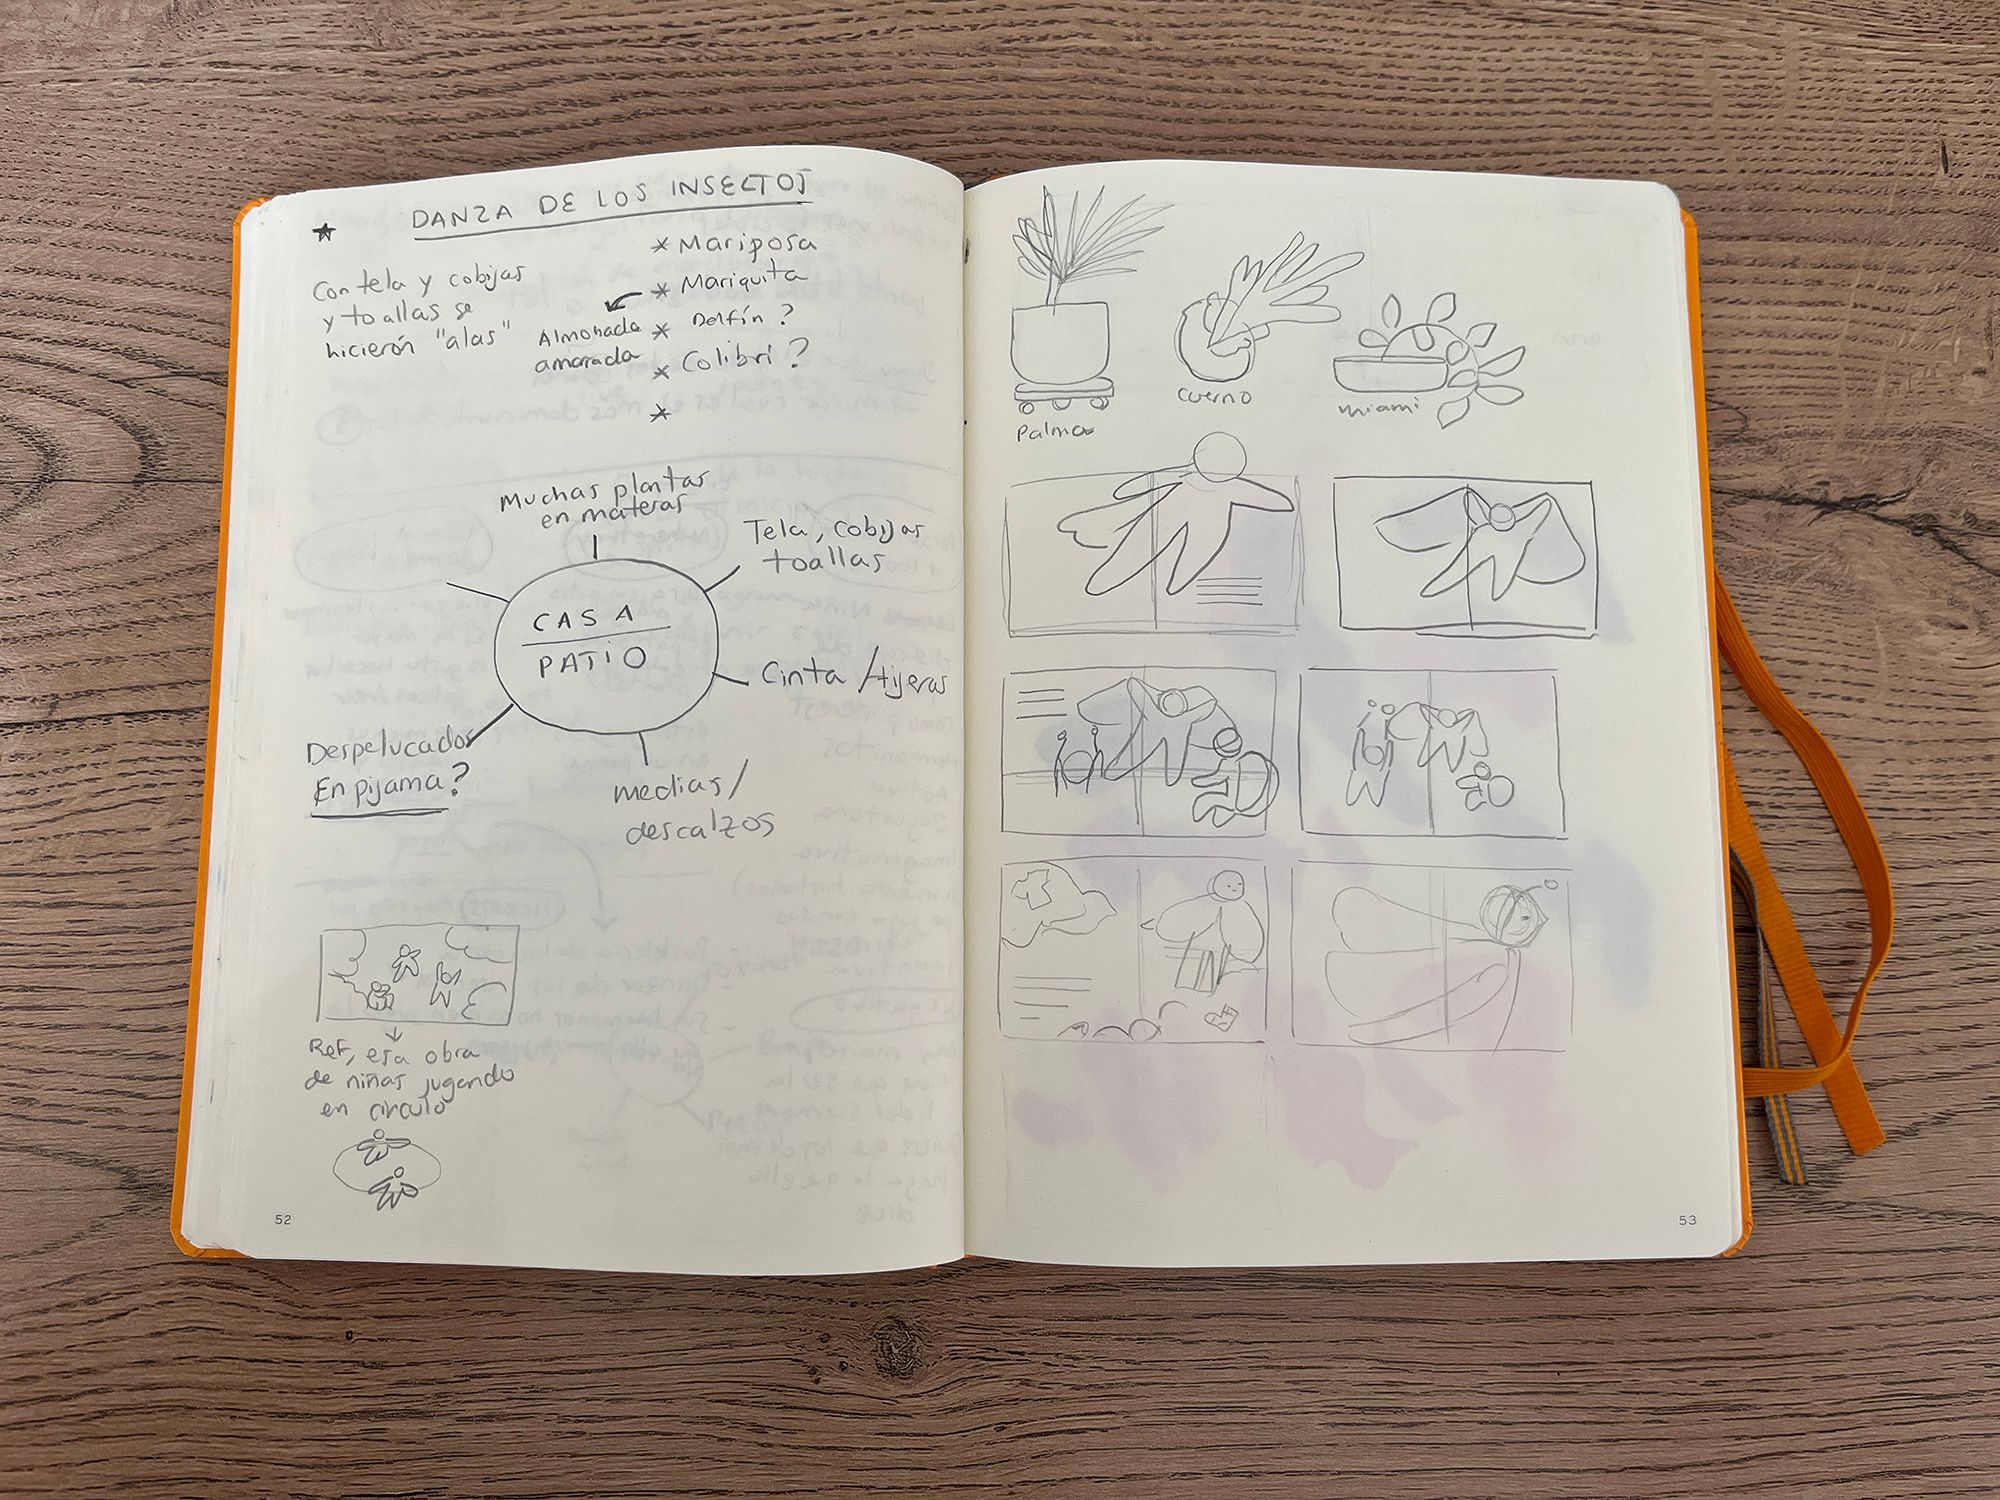 DANZA DE LOS INSECTOS
★
Con tela y cobijas
y toallas se
hicierón "alas"
* Mariposa
* Mariquita
Almohada
amorada
* Delfín ?
* Colibrí ?
*
Muchas plantas
en materas
Tela, cobijas
toallas
CASA
PATIO
Cinta /tijeras
Despelucados
En pijama?
medias/
descalzos
Ref, esa obra
de niñas jugando
en circulo
52
Palma
cuerno
miami
53